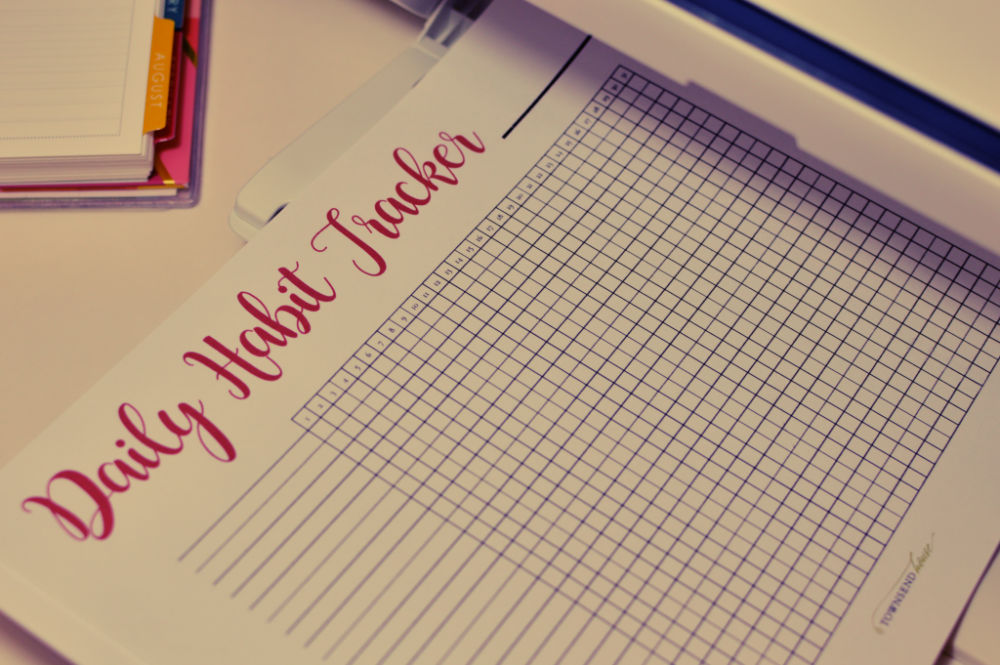 AUGUST
Daily Habit Tracker
1 2 3 4 5 6 7 8 9 10 11 12 13 14 15 16 17 18 19 20 21 22 23 24 25 26 27 28 29 30 31
TOWNSEND house